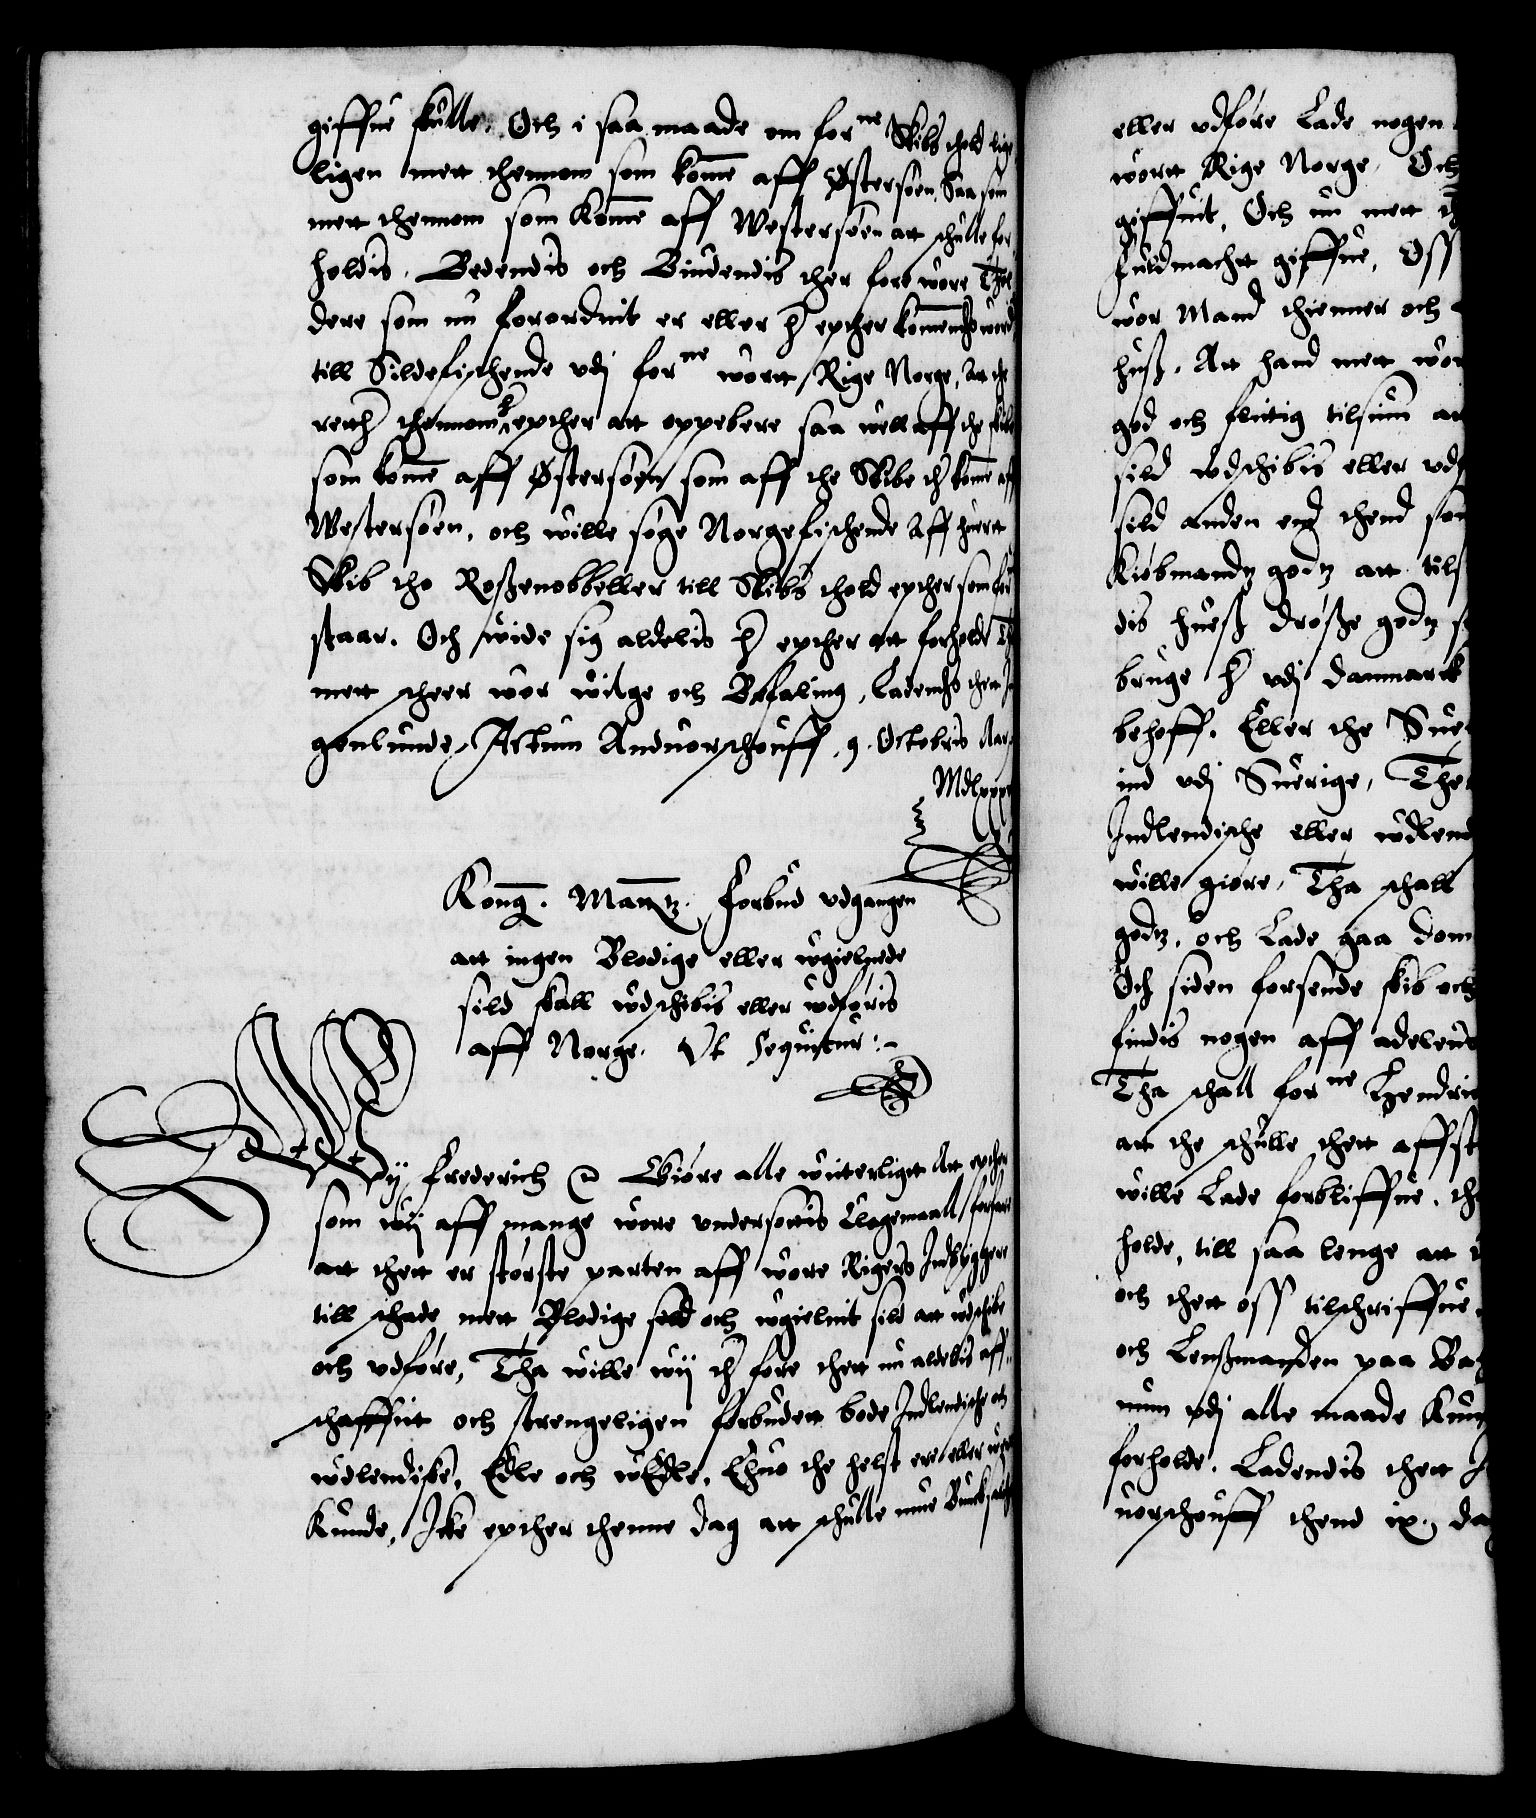 giffue skulle. Och i saa maade om for ne Skibs thold lige
ligen mett thennom som komme aff Østersøen, Saa som
mett thennom som komme aff Westersøen att schulle for
holdis. Bedendis och Biudendis ther fore wore
dere som nu forordnit er eller her epther kommendis
till Sildefischende vdj for ne wortt Rige Norge, Att the
retth thennom her epther att oppebere saa uell aff the skibe
som komme aff Østersøen som aff the Skibe ther komme aff
Westersøen, och wille søge Norgefischende Aff huertt
Skib tho Roßenobbeller till Skibs thold epther som for
staar. Och wide sig aldelis her epther att forholde Th
mett scheer wor wilge och Befaling, Ladendis thett In
genlunde, Actum Anduorschouff, 9. Octobris Aar
Mdlxxx
Kong. Maytz. Forbud vdgangen
att ingen Blodige eller wgielnede
sild skall wdschibis eller wdføris
aff Norge. Vt Sequitur:-
Wij Frederich Giøre alle witterligtt Att epther
som wij aff mange wore vndersotis Clagemaall forfare
att thett er største parten aff wore Rigers Indbyggere
till schade mett Blodige seld och wgielnit sild att wdschibe
och vdføre, Tha wille wij ther fore thett nu aldelis aff
schaffuit och strengeligen forbudett bode Indlendische och
wdlendiske, Edle och wEdle, Ehuo the helst ere eller were
Kunde, Icke epther thenne dag att schulle mue
eller vdføre Lade nogen
wortt Rige Norge, Och
giffuit, Och nu mett
fuldmachtt giffue, Oss
wor Mand thienner och
huß. Att hand mett wor
god och flittig tilsiun
sild wdschibis eller vd
sild anden end thend som
Kiøbmandz godz att tils
dis hueß drøße godz
bruge her vdj Danmarck
behoff. Eller the Sue
ind vdj Suerige, The
Indlendische eller wdlend
wille giøre, Tha schall
godz, och Lade gaa dom
Och siden forsende skib och
findis nogen aff adelens
Tha schall for ne Hendrick
att the schulle thett affst
wille Lade forbliffue.
holde, till saa lenge att
och thett oss tilschriffue
och Lenßmanden paa Ba
num vdj alle maade Kun
forholde. Ladendis thett
uorschouff thend ix. da